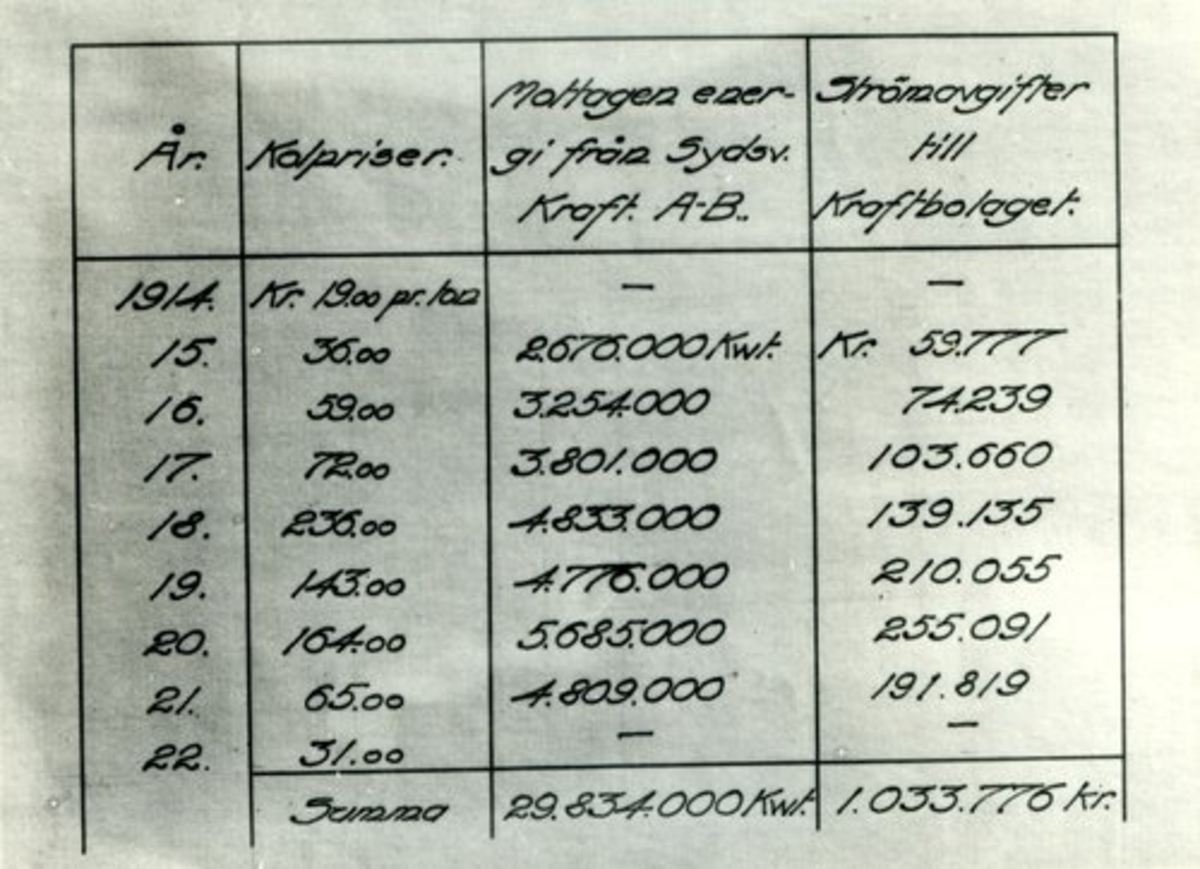 År. Kolpriser. Mottagen ener- Strömavgifter
gi från Sydsv. till
Kraft. A-B.. Kraftbolaget.
1914. Kr. 19.00 pr. ton — —
15. 36.00 2.676.000 Kwt. Kr. 59.777
16. 59.00 3.254.000 74.239
17. 72.00 3.801.000 103.660
18. 236.00 4.833.000 139.135
19. 143.00 4.776.000 210.055
20. 164.00 5.685.000 255.091
21. 65.00 4.809.000 191.819
22. 31.00 — —
Summa 29.834.000 Kwt. 1.033.776 kr.